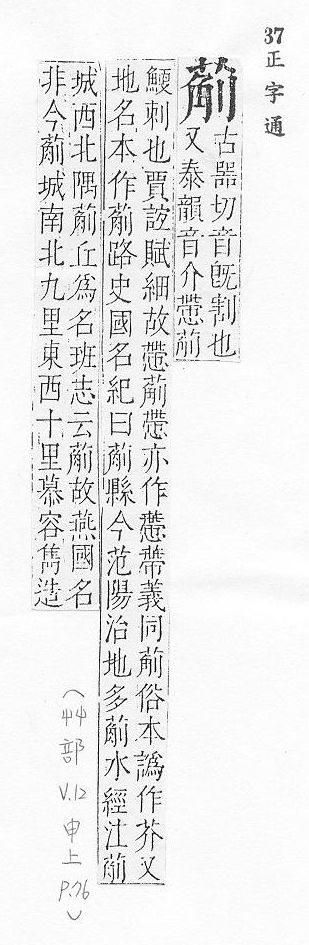 37正字通
葪
古器切音旣割也
又泰韻音介慸葪
鯁刺也賈誼賦細故慸葪慸亦作懘蔕義同葪俗本譌作芥又
地名本作葪路史國名紀曰葪縣今范陽治地多葪水經注葪
城西北隅葪丘爲名班志云葪故燕國名
非今葪城南北九里東西十里慕容雋造
(艸部 V.12 申上 P.76)